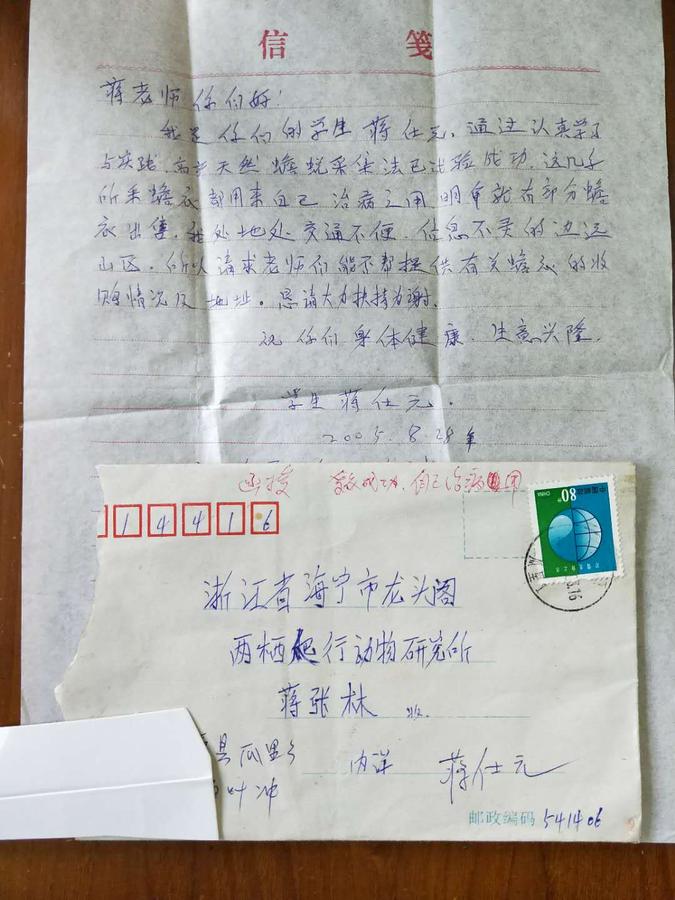 信 笺
蒋老师你们好!
我是你们的学生蒋仕元,通过认真学习
与实践,高产天然蟾蜕采集法已试验成功,这几年
所采蟾衣都用来自己治病之用,明年就有部分蟾
衣出售,我处地处交通不便,信息不灵的边远
山区,所以请求老师们能不帮提供有关蟾衣的收
购情况及地址。恳请大力扶持为谢。
祝你们身体健康,生意兴隆。
学生蒋仕元.
2005.8.28年
函授 自己治病用
1 4 4 1 6
中国邮政 80分
CHINA
浙江省海宁市龙头阁
两栖爬行动物研究所
蒋张林 收
县瓜里乡
叶冲
内详 蒋仕元
邮政编码 541406